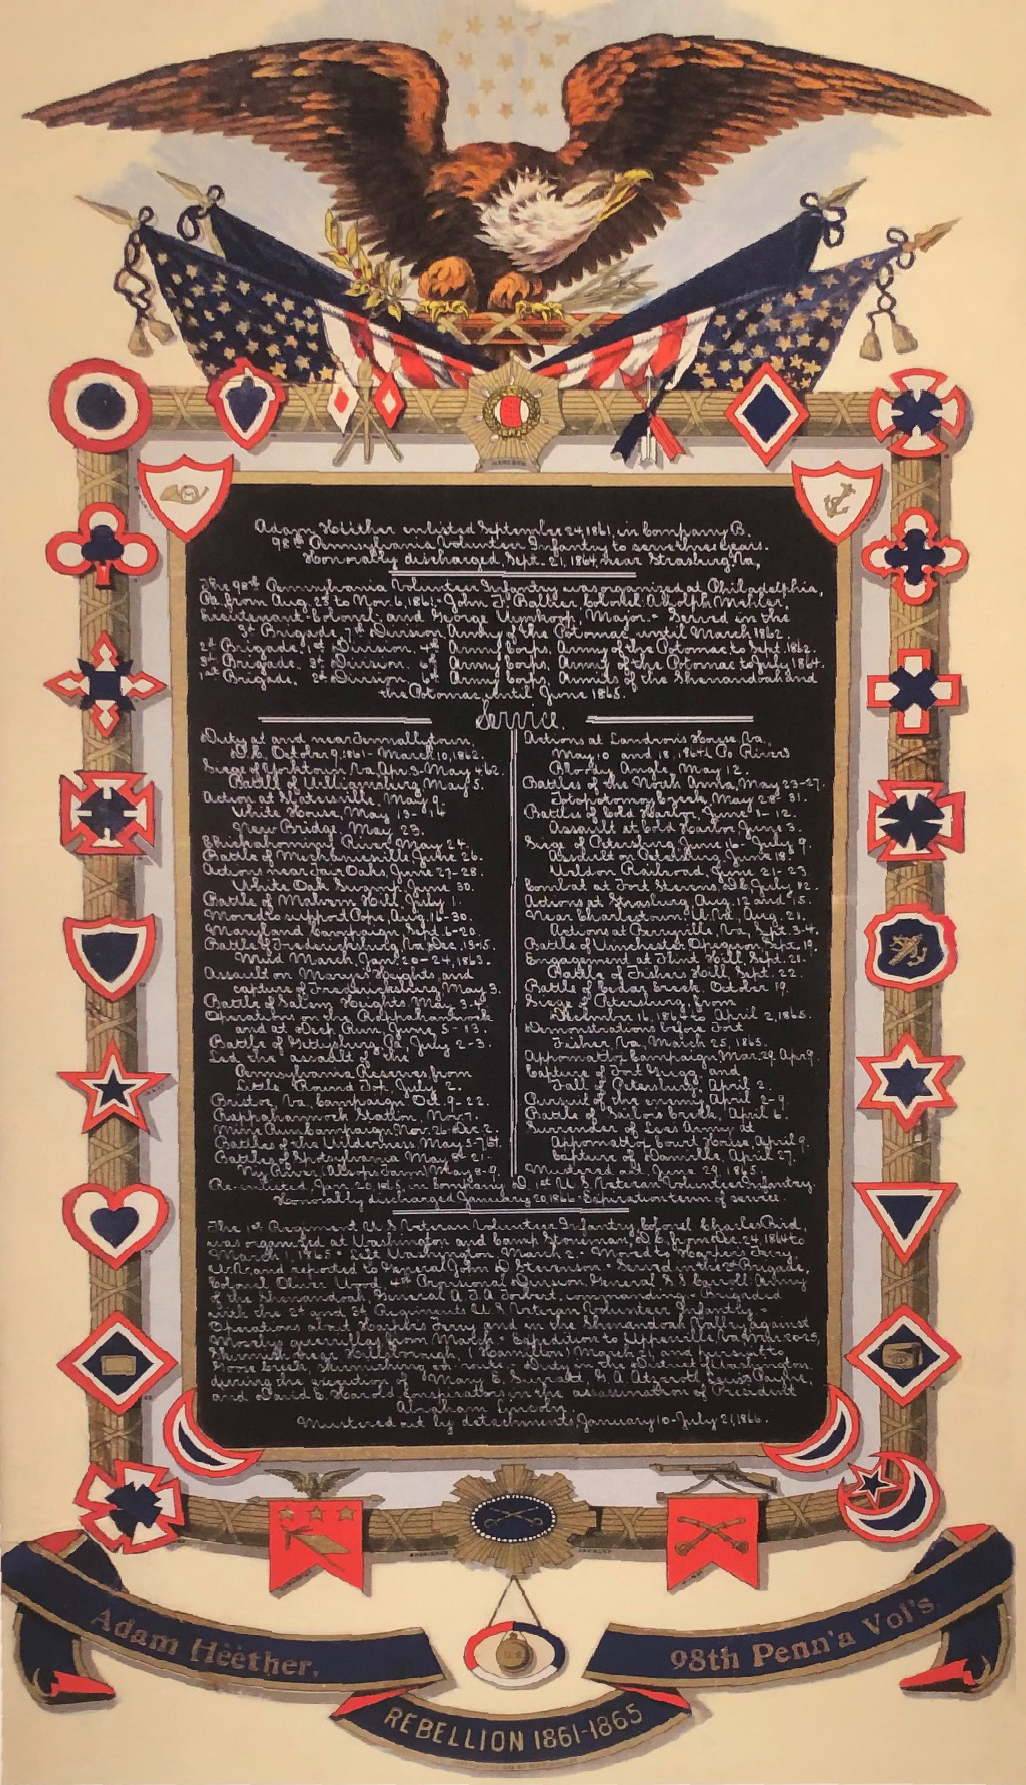 Adam Hëëther enlisted September 24, 1861, in Company B.
98th Pennsylvania Volunteer Infantry to serve three years.
Honorably discharged, Sept. 21, 1864, near Strasburg, Va,
The 98th Pennsylvania Volunteer Infantry was organized at Philadelphia,
Pa. from Aug. 2d to Nov. 6, 1861. John F. Ballier, Colonel. Adolph Mehler,
Lieutenant-Colonel, and George Wynkoop, Major. - Served in the
3d Brigade, 7th Division, Army of the Potomac until March 1862.
2d Brigade, 1st Division, 4th Army Corps, Army of the Potomac to Sept. 1862.
3d Brigade, 3d Division, 6th Army Corps, Army of the Potomac to July 1864.
1st Brigade, 2d Division, 6th Army Corps, Armies of the Shenandoah and
the Potomac until June 1865.
Service.
Duty at and near Tennallytown,
D.C. October 9, 1861 - March 10, 1862.
Siege of Yorktown, Va, Apr. 5 - May 4 62.
Battle of Williamsburg May 5.
Action at Slatersville, May 9.
White House, May 13-14
New Bridge, May 23.
Chickahominy River May 24.
Battle of Mechanicsville June 26.
Actions near Fair Oaks, June 27-28.
White Oak Swamp, June 30.
Battle of Malvern Hill July 1.
Moved to support Pope, Aug. 16-30.
Maryland Campaign, Sept. 6-20.
Battle of Fredericksburg, Va, Dec. 13-15.
Mud March, Jan. 20-24, 1863.
Assault on Marye's Heights, and
capture of Fredericksburg, May 3.
Battle of Salem Heights May 3-4.
Operations on the Rappahannock
and at Deep Run, June, 5-13.
Battle of Gettysburg, Pa, July 2-3.
Led the assault of the
Pennsylvania Reserves from
Little Round Top July 2.
Bristoe, Va, Campaign, Oct. 9-22.
Rappahannock Station, Nov. 7.
Mine Run Campaign, Nov. 26-Dec. 2.
Battles of the Wilderness, May 5-7
Battles of Spotsylvania May 8-21
Ny River, (Alsop's Farm) May 8-9.
Actions at Landron's House, Va,
May 10 and 18, 1864 Po River
Bloody Angle, May 12.
Battles of the North Anna, May 23-27.
Totopotomoy Creek, May 28-31.
Battles of Cold Harbor, June 1-12.
Assault at Cold Harbor June 3.
Siege of Petersburg June 16-July 9.
Assault on Petersburg June 18.
Weldon Railroad, June 21-23
Combat at Fort Stevens, D.C, July 12.
Actions at Strasburg, Aug. 12 and 15.
Near Charlestown, W. Va, Aug. 21.
Actions at Berryville, Va, Sept. 3-4.
Battle of Winchester, Opequon Sept. 19.
Engagement at Flint Hill Sept. 21.
Battle of Fisher's Hill Sept. 22.
Battle of Cedar Creek, October 19.
Siege of Petersburg, from
December 16, 1864 to April 2, 1865.
Demonstrations before Fort
Fisher, Va, March 25, 1865.
Appomattox Campaign Mar. 29, Apr 9.
Capture of Fort Gregg, and
Fall of Petersburg, April 2.
Pursuit of the enemy, April 2-9.
Battle of Sailor's Creek, April 6.
Surrender of Lee's Army at
Appomattox Court House, April 9.
Capture of Danville, April 27.
Mustered out, June 29, 1865.
Re-enlisted, in Company D, 1st U S Veteran Volunteer Infantry.
Honorably discharged January 20, 1866 - Expiration term of service.
The 1st Regiment U. S. Veteran Volunteer Infantry, Colonel Charles Bird,
was organized at Washington and Camp Stoneman, D.C, from Dec. 24, 1864 to
March 1, 1865. - Left Washington, March 2. - Moved to Harper's Ferry,
W. V. and reported to General John D Stevenson - Served in the Brigade,
Colonel Oliver Wood, 4th Provisional Division, General S S Carroll Army
of the Shenandoah, General A. T. A. Torbert, commanding. - Brigaded
with the 2d and 3d Regiments U. S. Veteran Volunteer Infantry. -
Operations about Harper's Ferry and in the Shenandoah Valley against
Mosby's guerrillas from March - Expedition to Upperville, Va March 20-25,
Skirmish near Hillsborough (Hamilton) March 21, and pursuit to
Goose Creek, skirmishing en route. - Duty in the District of Washington
during the execution of Mary E. Surratt, G. A. Atzerott, Lewis Payne,
and David E. Harold Conspirators in the assassination of President
Abraham Lincoln.
Mustered out by detachments, January 10-July 21, 1866.
Adam Hëëther,
98th Penn'a Vol's.
REBELLION 1861-1865